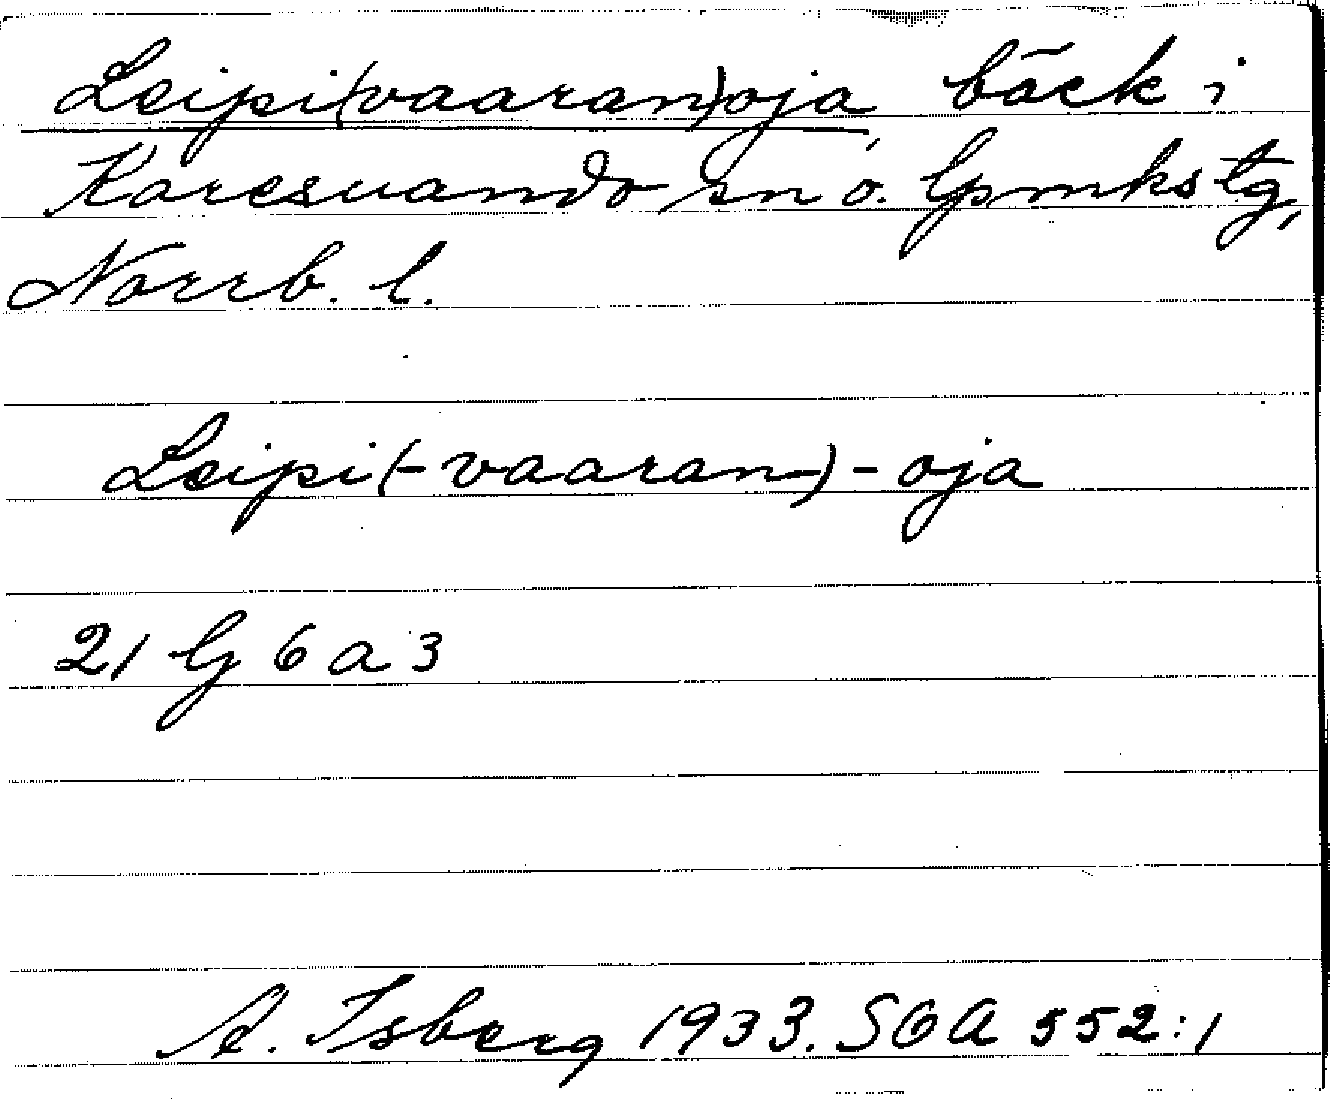 Leipi(vaaran)oja, bäck i
Karesuando sn o. lpmkstg,
Norrb. l.
Leipi(-vaaran-)-oja
21 G 6 a 3
A. Isberg 1933. SOA 552:1